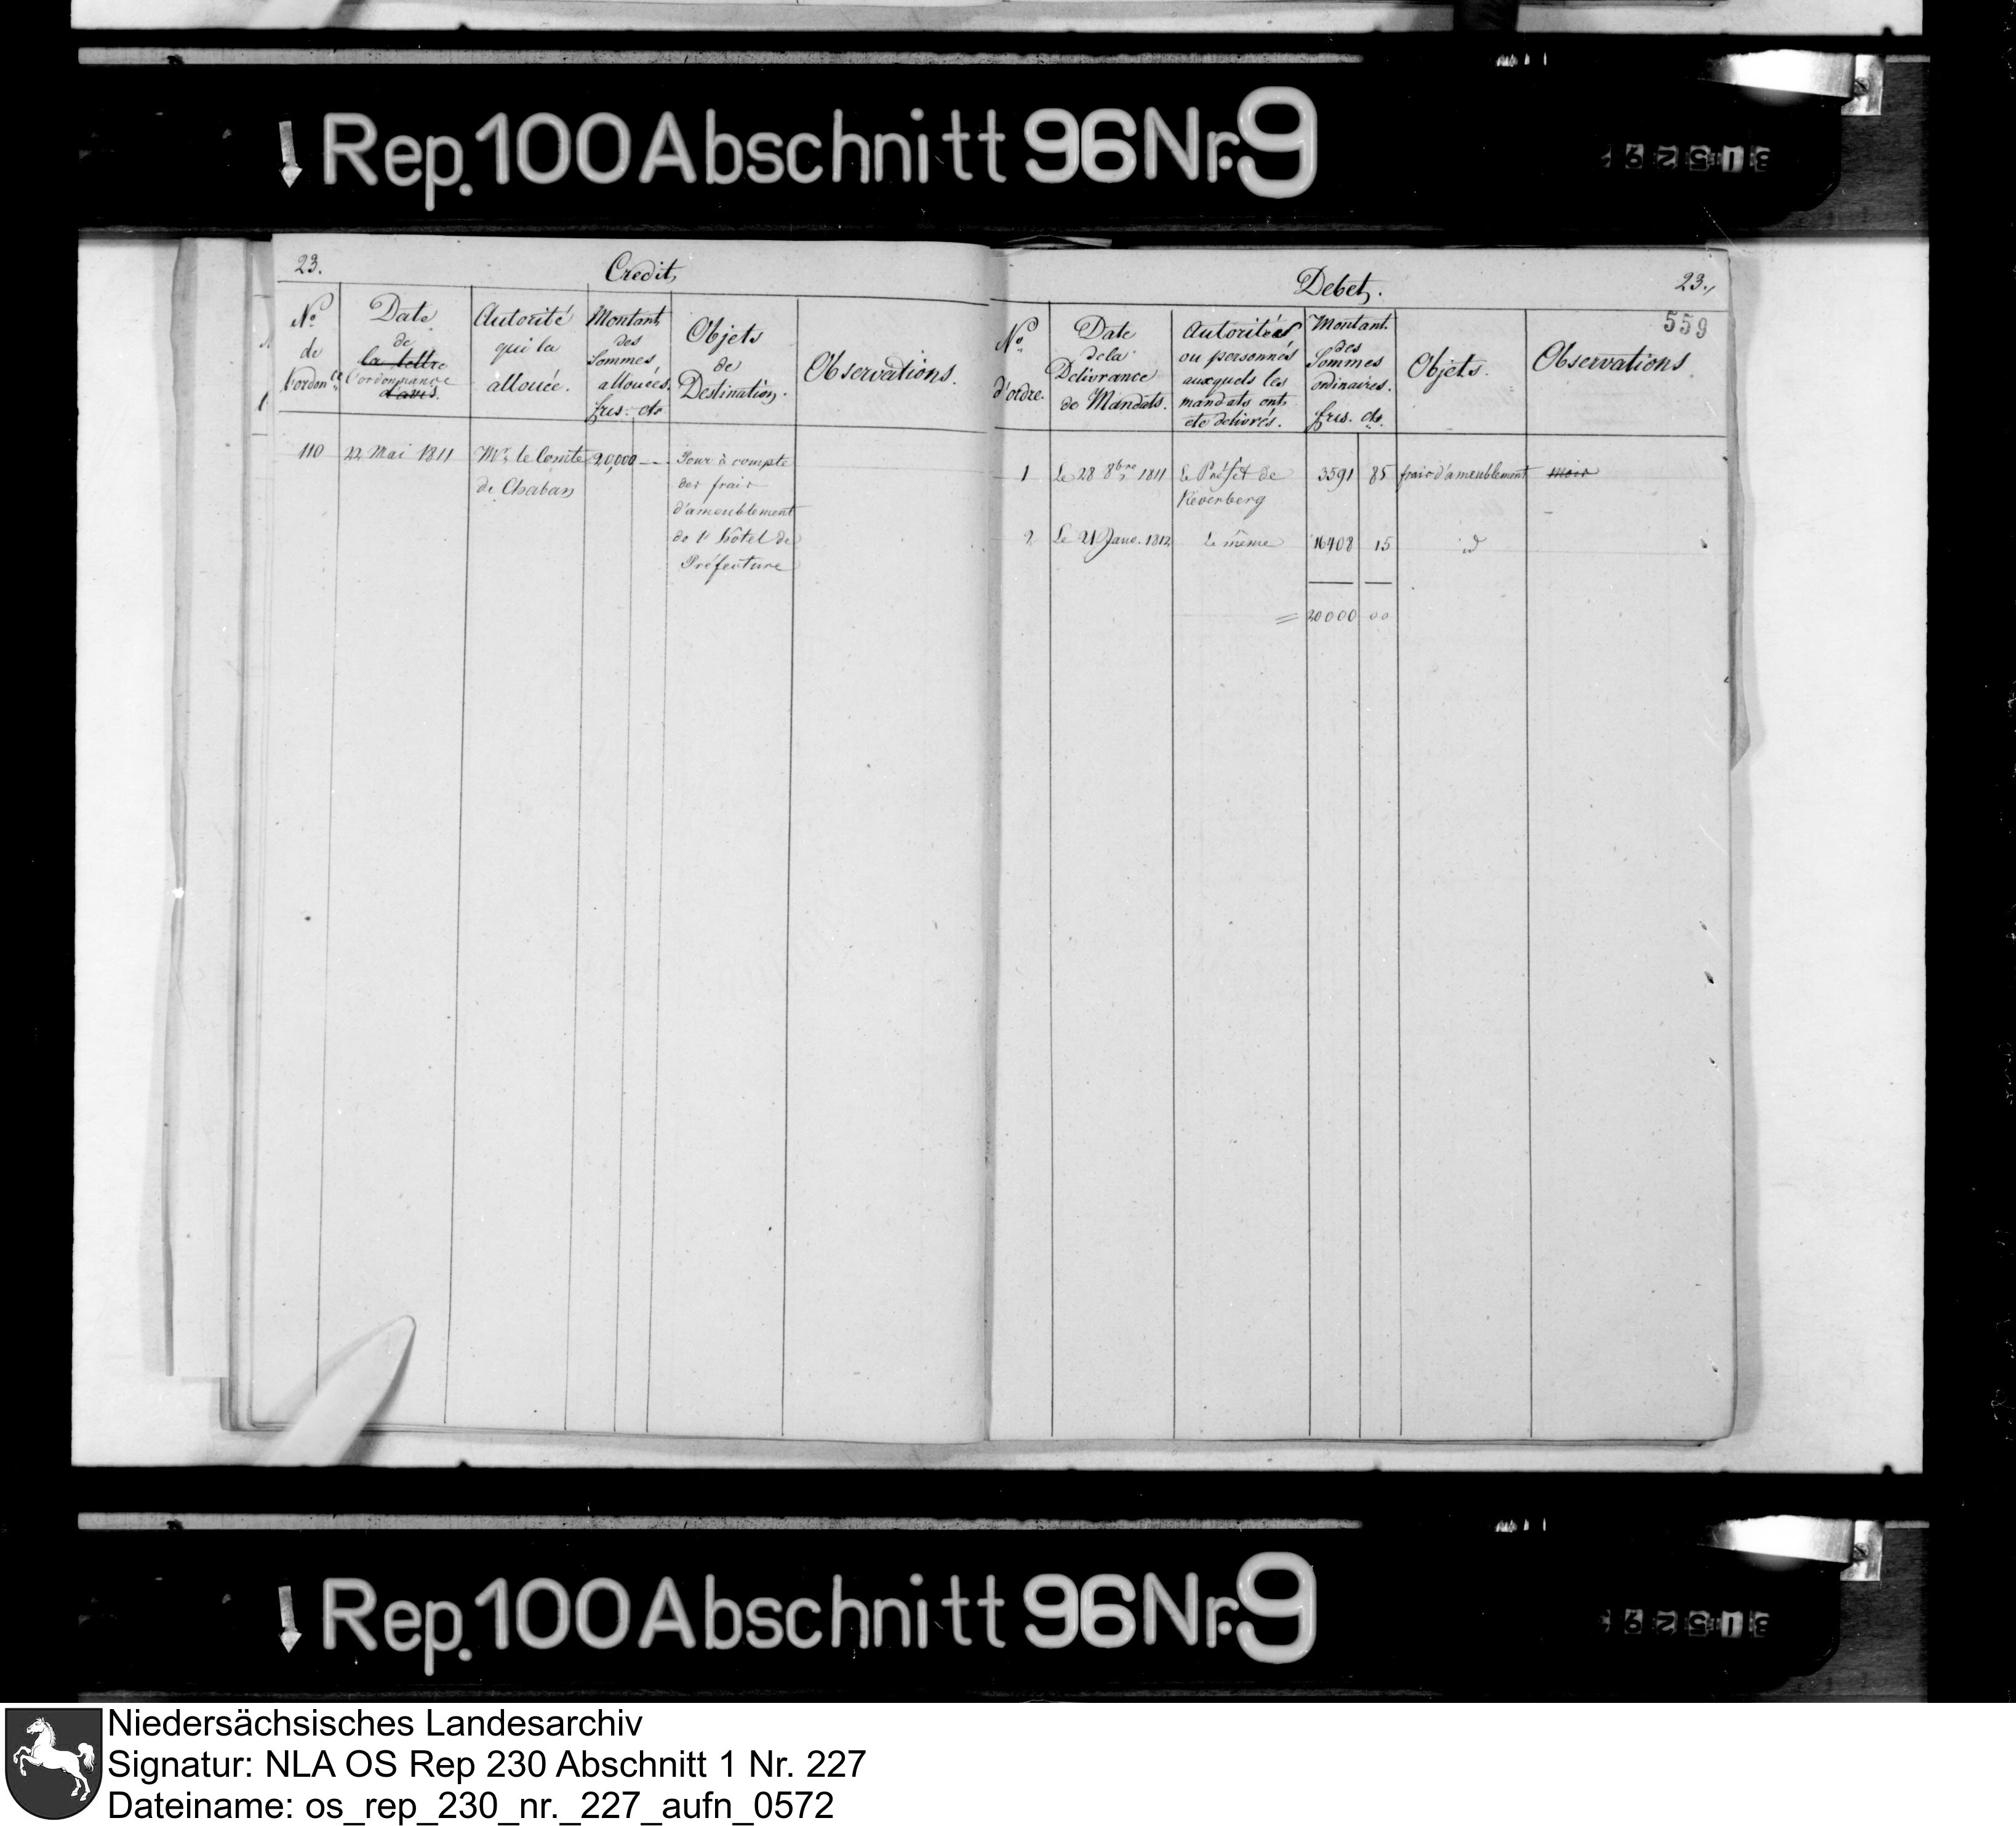 Rep. 100 Abschnitt 96 Nr. 9
23.
Credit
No de l'ordon.ce
Date de la lettre l'ordonnance d'avis
Autorité qui la allouée.
Montant des Sommes allouées. frcs. cts
Objets de Destination.
Observations.
110
22 Mai 1811
Mr. le Comte de Chaban
20,000 —
Pour à compte des frais d'ameublement de l'Hôtel de Préfecture
Debet.
23.
559
No d'ordre.
Date de la Delivrance de Mandats.
Autorités ou personnes auxquels les mandats ont été delivrés.
Montant des Sommes ordinaires. frcs. cts.
Objets.
Observations
1
Le 28 8bre 1811
Le Préfet de Keverberg
3591 85
frais d'ameublement
2
Le 21 Janv. 1812
Le même
16408 15
id
= 20000 00
Rep. 100 Abschnitt 96 Nr. 9
Niedersächsisches Landesarchiv
Signatur: NLA OS Rep 230 Abschnitt 1 Nr. 227
Dateiname: os_rep_230_nr._227_aufn_0572